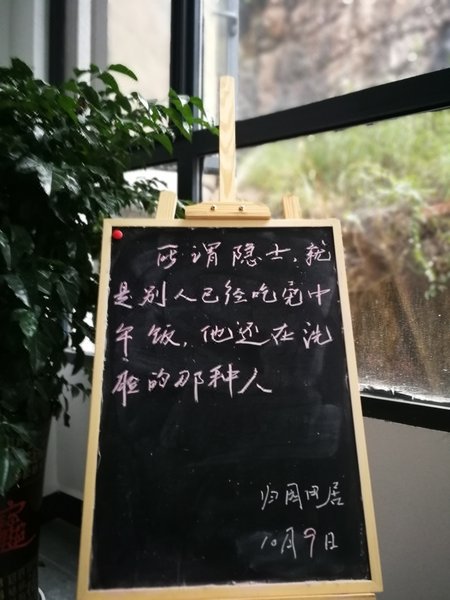 所谓隐士，就
是别人已经吃完中
午饭，他还在洗
脸的那种人
归园田居
10月9日